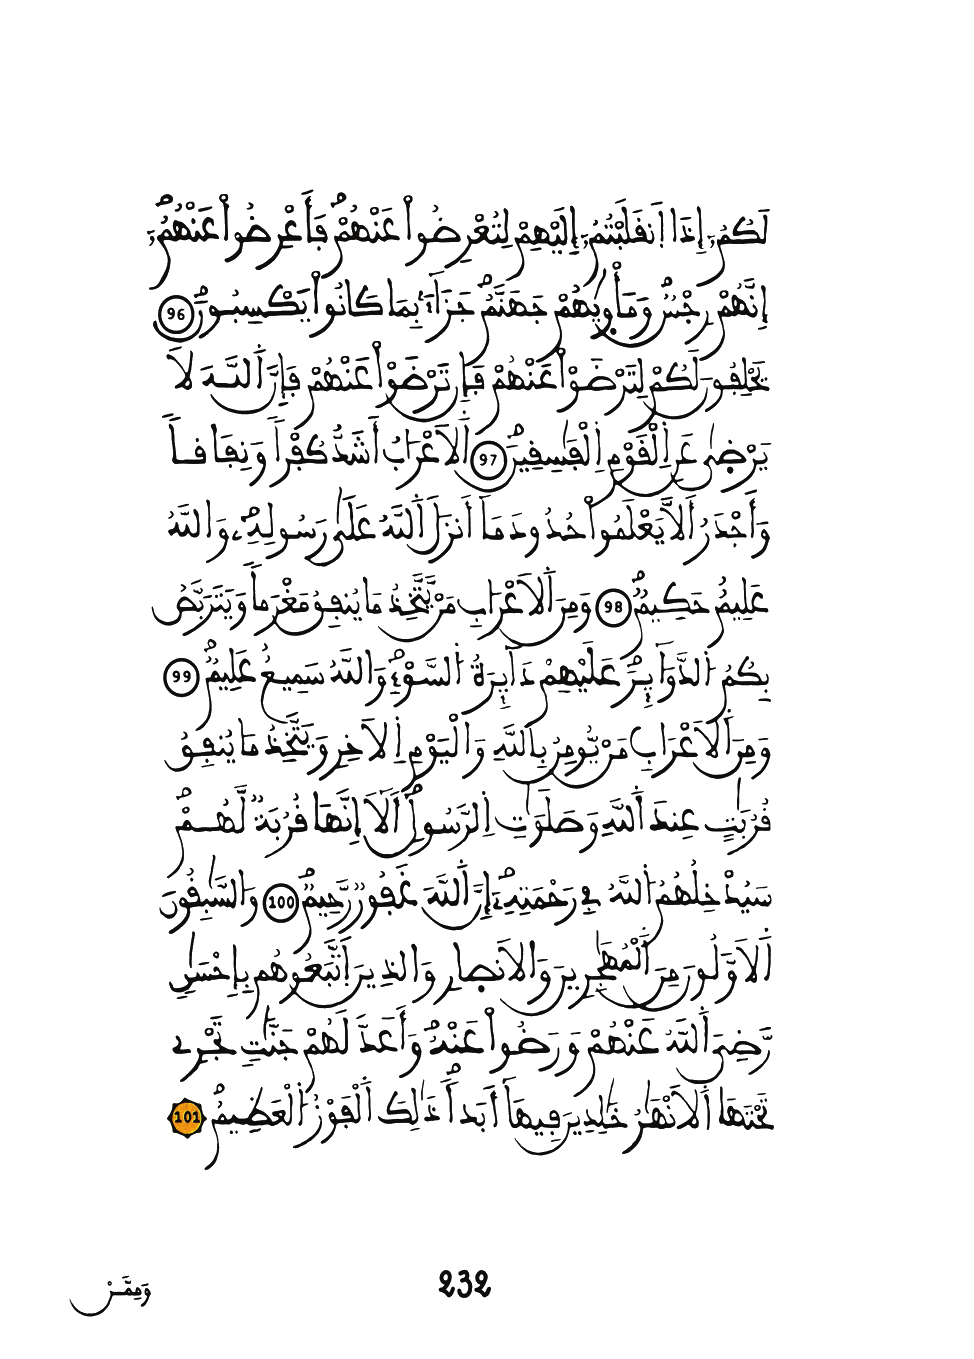 لَكُمُۥٓ إِذَا اَ۪نقَلَبْتُمُۥٓ إِلَيْهِمْ لِتُعْرِضُواْ عَنْهُمْ فَأَعْرِضُواْ عَنْهُمُۥٓ
إِنَّهُمْ رِجْسٌ وَمَأْو۪يٰهُمْ جَهَنَّمُ جَزَآءَۢ بِمَا كَانُواْ يَكْسِبُونَ 96
يَحْلِفُونَ لَكُمْ لِتَرْضَوْاْ عَنْهُمْ فَإِن تَرْضَوْاْ عَنْهُمْ فَإِنَّ اَ۬للَّهَ لَا
يَرْضَىٰ عَنِ اِ۬لْقَوْمِ اِ۬لْفَٰسِقِينَ 97 اَ۬لْأَعْرَابُ أَشَدُّ كُفْراً وَنِفَاقاً
وَأَجْدَرُ أَلَّا يَعْلَمُواْ حُدُودَ مَآ أَنزَلَ اَ۬للَّهُ عَلَىٰ رَسُولِهِۦ وَاللَّهُ
عَلِيمٌ حَكِيمٌ 98 وَمِنَ اَ۬لْأَعْرَابِ مَنْ يَّتَّخِذُ مَا يُنفِقُ مَغْرَماً وَيَتَرَبَّصُ
بِكُمُ اُ۬لدَّوَآئِرَ عَلَيْهِمْ دَآئِرَةُ اُ۬لسَّوْءِ وَاللَّهُ سَمِيعٌ عَلِيمٌ 99
وَمِنَ اَ۬لْأَعْرَابِ مَنْ يُّومِنُ بِاللَّهِ وَالْيَوْمِ اِ۬لْأٓخِرِ وَيَتَّخِذُ مَا يُنفِقُ
قُرُبَٰتٍ عِندَ اَ۬للَّهِ وَصَلَوَٰتِ اِ۬لرَّسُولِ أَلَآ إِنَّهَا قُرُبَةٌ لَّهُمْ
سَيُدْخِلُهُمُ اُ۬للَّهُ فِي رَحْمَتِهِۦٓ إِنَّ اَ۬للَّهَ غَفُورٌ رَّحِيمٌ 100 وَالسَّٰبِقُونَ
اَ۬لْأَوَّلُونَ مِنَ اَ۬لْمُهَٰجِرِينَ وَالْأَنصِارِ وَالذِينَ اَ۪تَّبَعُوهُم بِإِحْسَٰنٍ
رَّضِيَ اَ۬للَّهُ عَنْهُمْ وَرَضُواْ عَنْهُ وَأَعَدَّ لَهُمْ جَنَّٰتٍ تَجْرِے
تَحْتَهَا اَ۬لْأَنْهَٰرُ خَٰلِدِينَ فِيهَآ أَبَداً ذَٰلِكَ اَ۬لْفَوْزُ اُ۬لْعَظِيمُ 101
232
وَمِمَّنْ